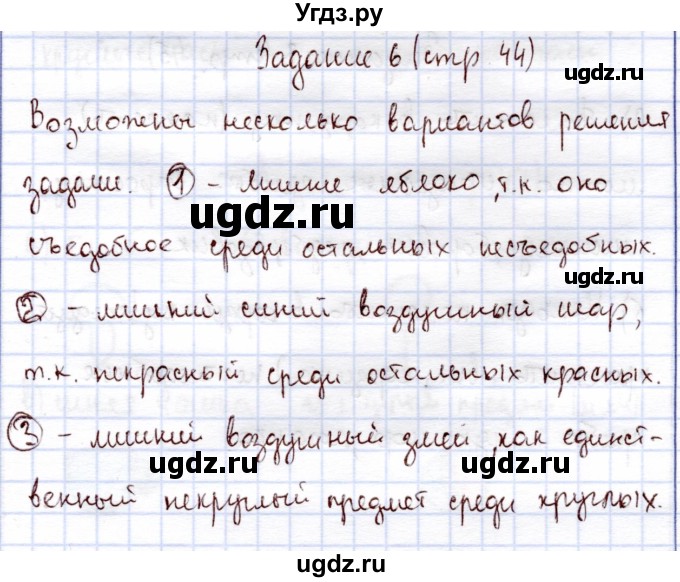 Угдз.ру
Задание 6 (стр. 44)
Возможены несколько вариантов решения
задачи. 1 - Лишнее яблоко, т.к. оно
съедобное среди остальных несъедобных.
2 - лишний синий воздушный шар,
т.к. некрасный среди остальных красных.
3 - лишний воздушный змей, как единст-
венный некруглый предмет среди круглых.
ugdz.ru
ugdz.ru
ugdz.ru
ugdz.ru
ugdz.ru
ugdz.ru
ugdz.ru